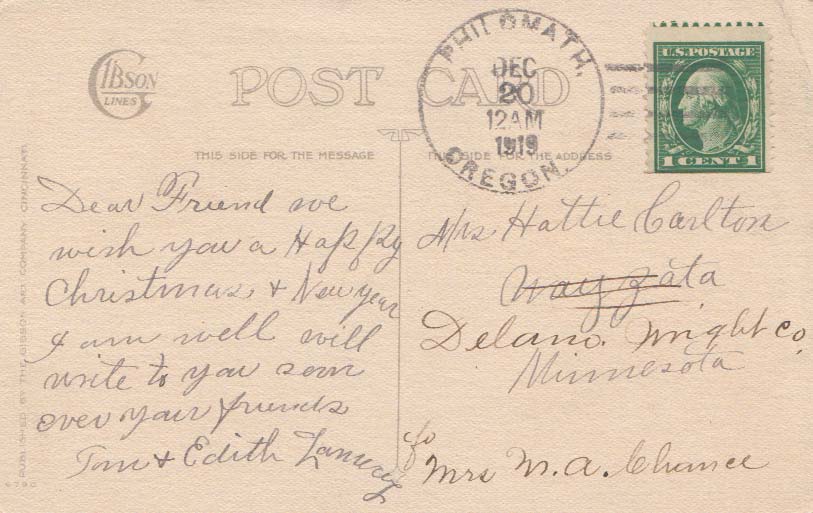 GIBSON
LINES
POST CARD
PHILOMATH,
DEC
20
12AM
1919
OREGON.
U.S. POSTAGE
1 CENT 1
THIS SIDE FOR THE MESSAGE
THIS SIDE FOR THE ADDRESS
PUBLISHED BY THE GIBSON ART COMPANY, CINCINNATI
Dear Friend we
wish you a Happy
Christmas & New year
I am well will
write to you soon
ever your friends
Tom & Edith
Mrs Hattie Carlton
Wayzata
Delano. Wright Co.
Minnesota
c/o
Mrs M.A. Chance